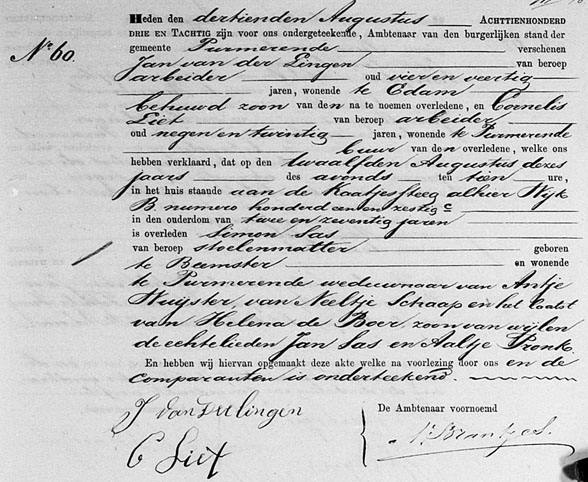 No 60.
Heden den dertienden Augustus ACHTTIENHONDERD
DRIE EN TACHTIG zijn voor ons ondergeteekende, Ambtenaar van den burgerlijken stand der
gemeente Purmerende verschenen
Jan van der Lingen van beroep
arbeider oud vier en veertig
jaren, wonende te Edam
behuwd zoon van den na te noemen overledene, en Cornelis
Liet van beroep arbeider
oud negen en twintig jaren, wonende te Purmerende
buur van den overledene, welke ons
hebben verklaard, dat op den twaalfden Augustus dezes
jaars des avonds ten tien ure,
in het huis staande aan de Kaatjesteeg alhier Wijk
B numero honderd een en zestig c
in den ouderdom van twee en zeventig jaren
is overleden Simon Sas
van beroep stoelenmatter geboren
te Beemster en wonende
te Purmerende weduwnaar van Antje
van Neeltje Schaap en het laatst
van Helena de Boer, zoon van wijlen
de echtelieden Jan Sas en Aaltje Pronk.
En hebben wij hiervan opgemaakt deze akte welke na voorlezing door ons en de
comparanten is onderteekend.
J van der Lingen
De Ambtenaar voornoemd
C Liet